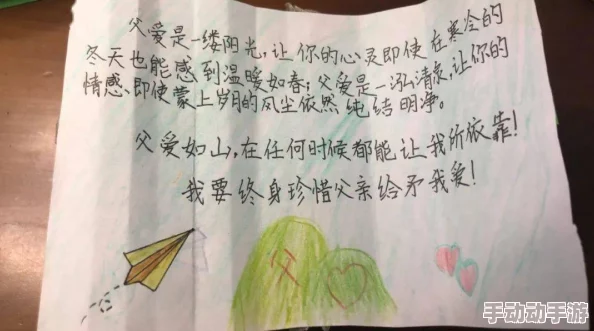 父爱是一缕阳光,让你的心灵即使在寒冷的
冬天也能感到温暖如春;父爱是一泓清泉,让你的
情感即使蒙上岁月的风尘依然纯结明净。
父爱如山,在任何时候都能让我所依靠!
我要终身珍惜父亲给予我爱!
父
手动动手游